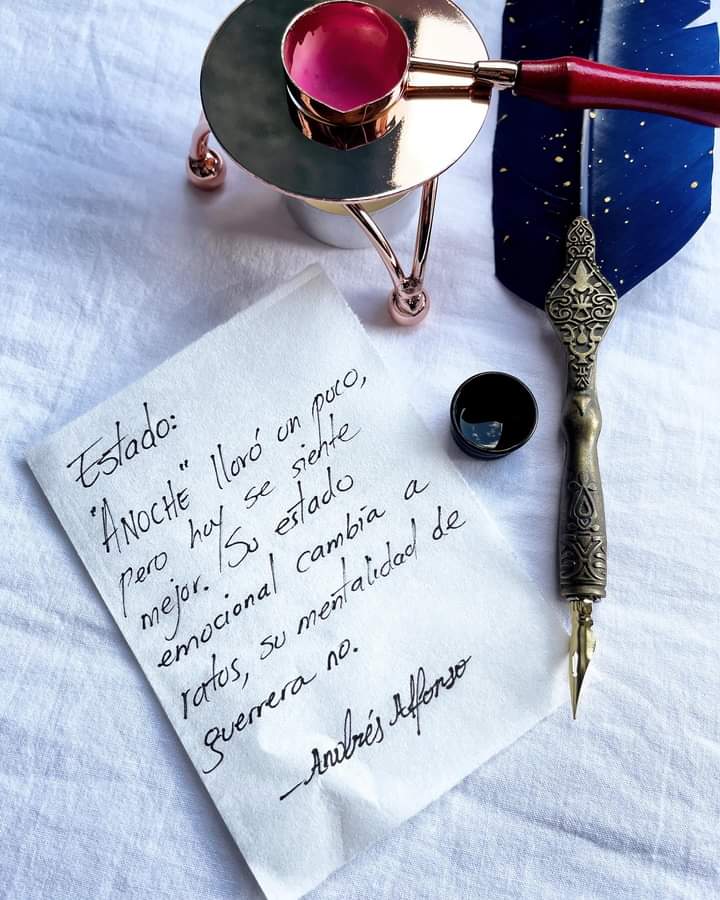 Estado:
"ANOCHE" lloró un poco,
pero hoy se siente
mejor. Su estado
emocional cambia a
ratos, su mentalidad de
guerrera no.
—Andrés Alfonso